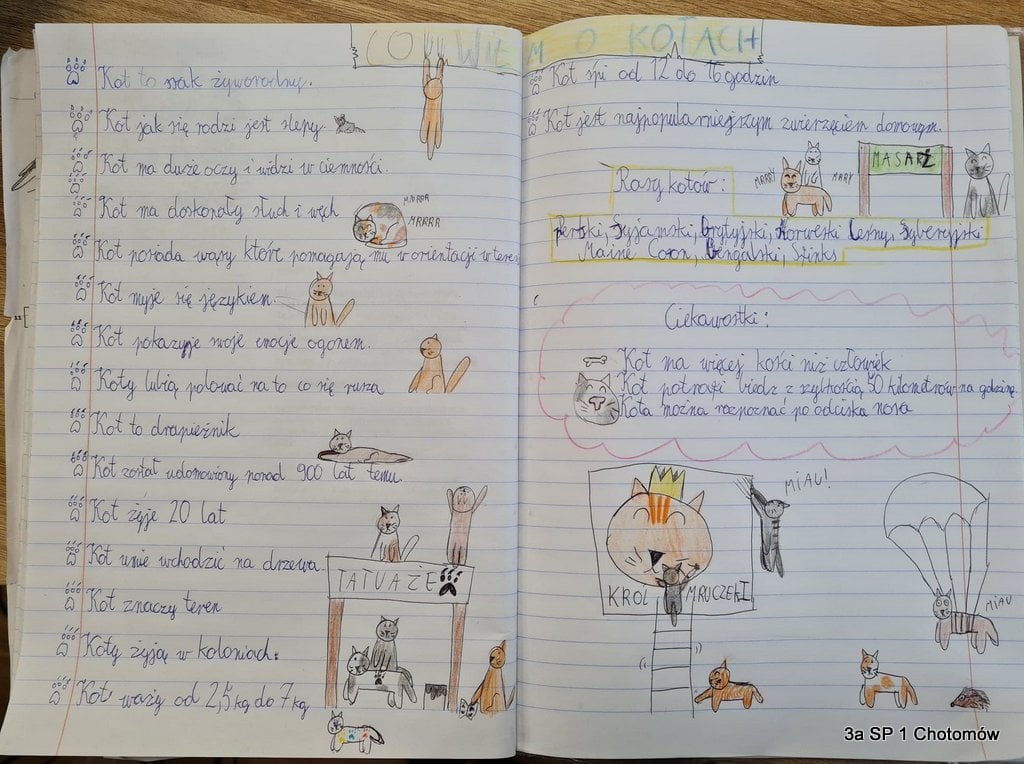 CO WIEM O KOTACH
Kot to ssak żyworodny.
Kot jak się rodzi jest ślepy.
Kot ma duże oczy i widzi w ciemności.
Kot ma doskonały słuch i węch
MRRRR
MRRRR
Kot posiada wąsy które pomagają mu w orientacji w terenie
Kot myje się językiem.
Kot pokazyje swoje emocje ogonem.
Koty lubią polować na to co się rusza
Kot to drapieżnik
Kot został udomowiony ponad 900 lat temu.
Kot żyje 20 lat
Kot umie wchodzić na drzewa.
TATUAŻE
Kot znaczy teren
Koty żyją w koloniach.
Kot waży od 2,5 kg do 7 kg
Kot śpi od 12 do 16 godzin
Kot jest najpopularniejszym zwierzęciem domowym.
MASAŻ
MRRY
MRRY
Rasy kotów:
Perski, Syjamski, Brytyjski, Norweski Leśny, Syberyjski
Maine Coon, Bengalski, Sfinks
Ciekawostki:
Kot ma więcej kości niż człowiek
Kot potrafi biedz z szybkością 50 kilometrów na godzinę
Kota można rozpoznać po odcisku nosa
MIAU!
KRÓL MRUCZEKI
MIAU
3a SP 1 Chotomów